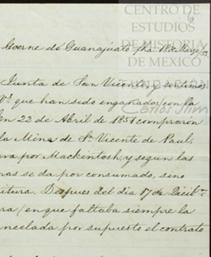 CENTRO DE
ESTUDIOS
DE HISTORIA
DE MÉXICO
Goerne de Guanajuato fha
Junta de San Vicente, q. estamos
que han sido engañados con la
22 de Abril de 1851 compraron
la Mina de Sn. Vicente de Paul,
va por Mackintosh, y segun las
as se da por consumado, sino
itura. Despues del dia 17 de
ra/ en que faltaba siempre la
ncelada por supuesto el contrato